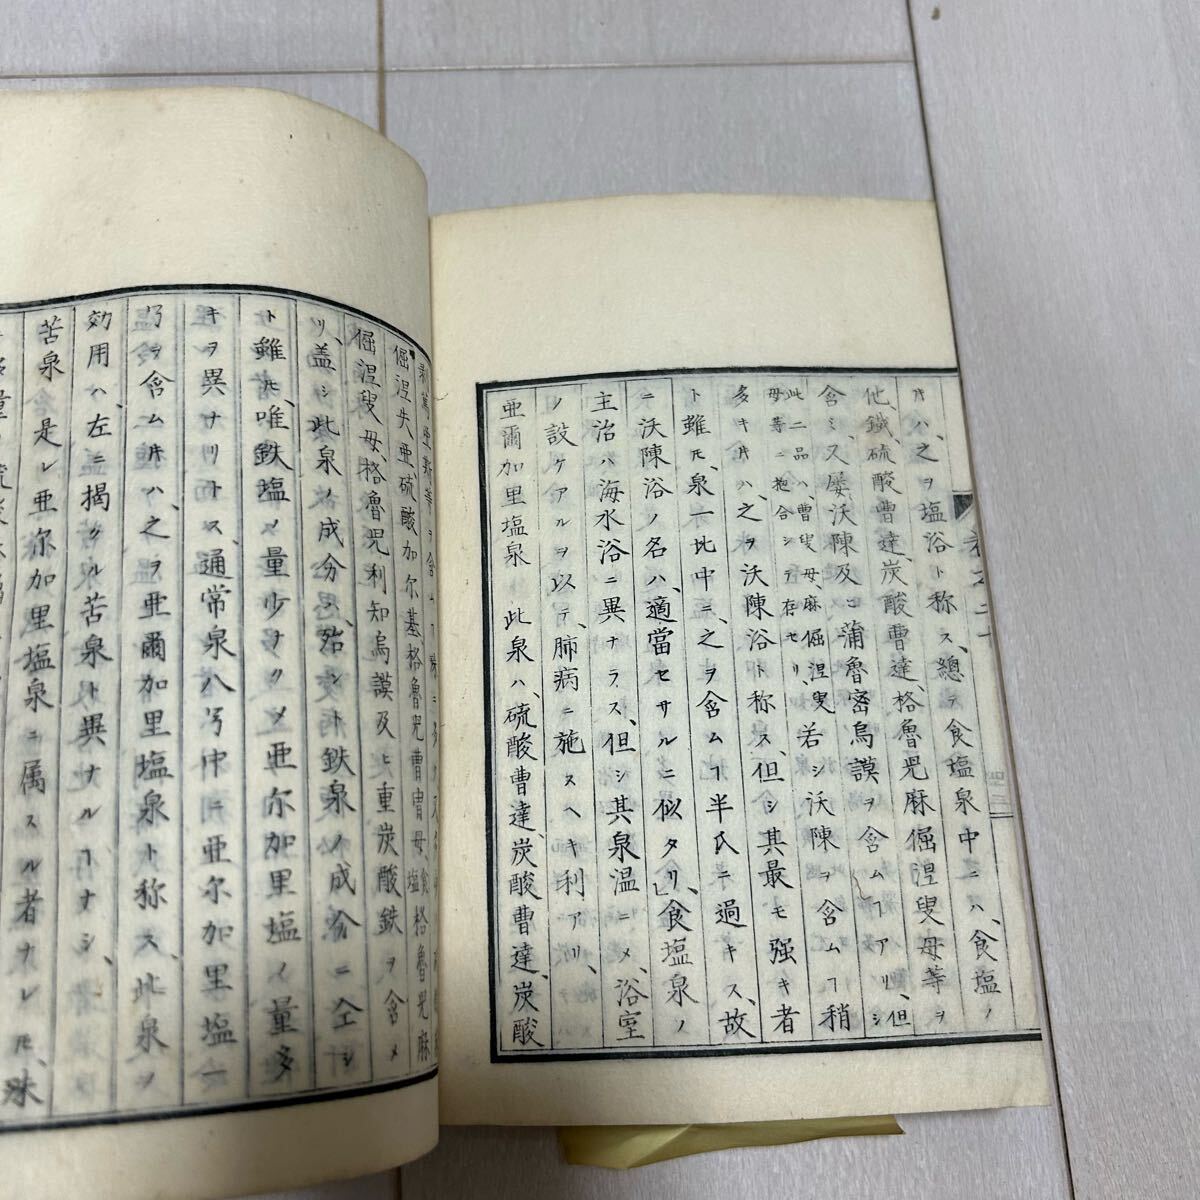 片ハ、之ヲ塩浴ト称ス、總テ食塩泉中ニハ、食塩ノ
他、鐵、硫酸曹達、炭酸曹達、格魯児麻倔涅叟母等ヲ
含ミ、又屡沃陳及ヒ蒲魯密烏謨ヲ含ムヿアリ、但シ
此二品ハ、曹叟母、麻倔涅叟
母等ニ抱合シテ存セリ、
若シ沃陳ヲ含ムヿ稍
多キ片ハ、之ヲ沃陳浴ト称ス、但シ其最モ强キ者
ト雖モ、泉一㪲中ニ、之ヲ含ムヿ半氏ニ過キス、故
ニ沃陳浴ノ名ハ、適當セサルニ似タリ、食塩泉ノ
主治ハ海水浴ニ異ナラス、但シ其泉温ニメ、浴室
ノ設ケアルヲ以テ、肺病ニ施スヘキ利アリ、
亜爾加里塩泉 此泉ハ、硫酸曹達、炭酸曹達、炭酸
倔涅失亜、硫酸加尔基格魯児曹冑母、格魯児麻
倔涅叟母、格魯児利知烏謨及ヒ重炭酸鉄ヲ含メ
リ、盖シ此泉ノ成分ハ、殆ント鉄泉ノ成分ニ仝シ
ト雖モ、唯鉄塩ノ量少ヲクメ亜尔加里塩ノ量多
キヲ異ナリトス、通常泉八丐中ニ亜尔加里塩一
丐ヲ含ム片ハ、之ヲ亜爾加里塩泉ト称ス、此泉ノ
効用ハ、左ニ揭クル苦泉ト異ナルヿナシ、
苦泉 是レ亜尔加里塩泉ニ属スル者ナレモ、殊